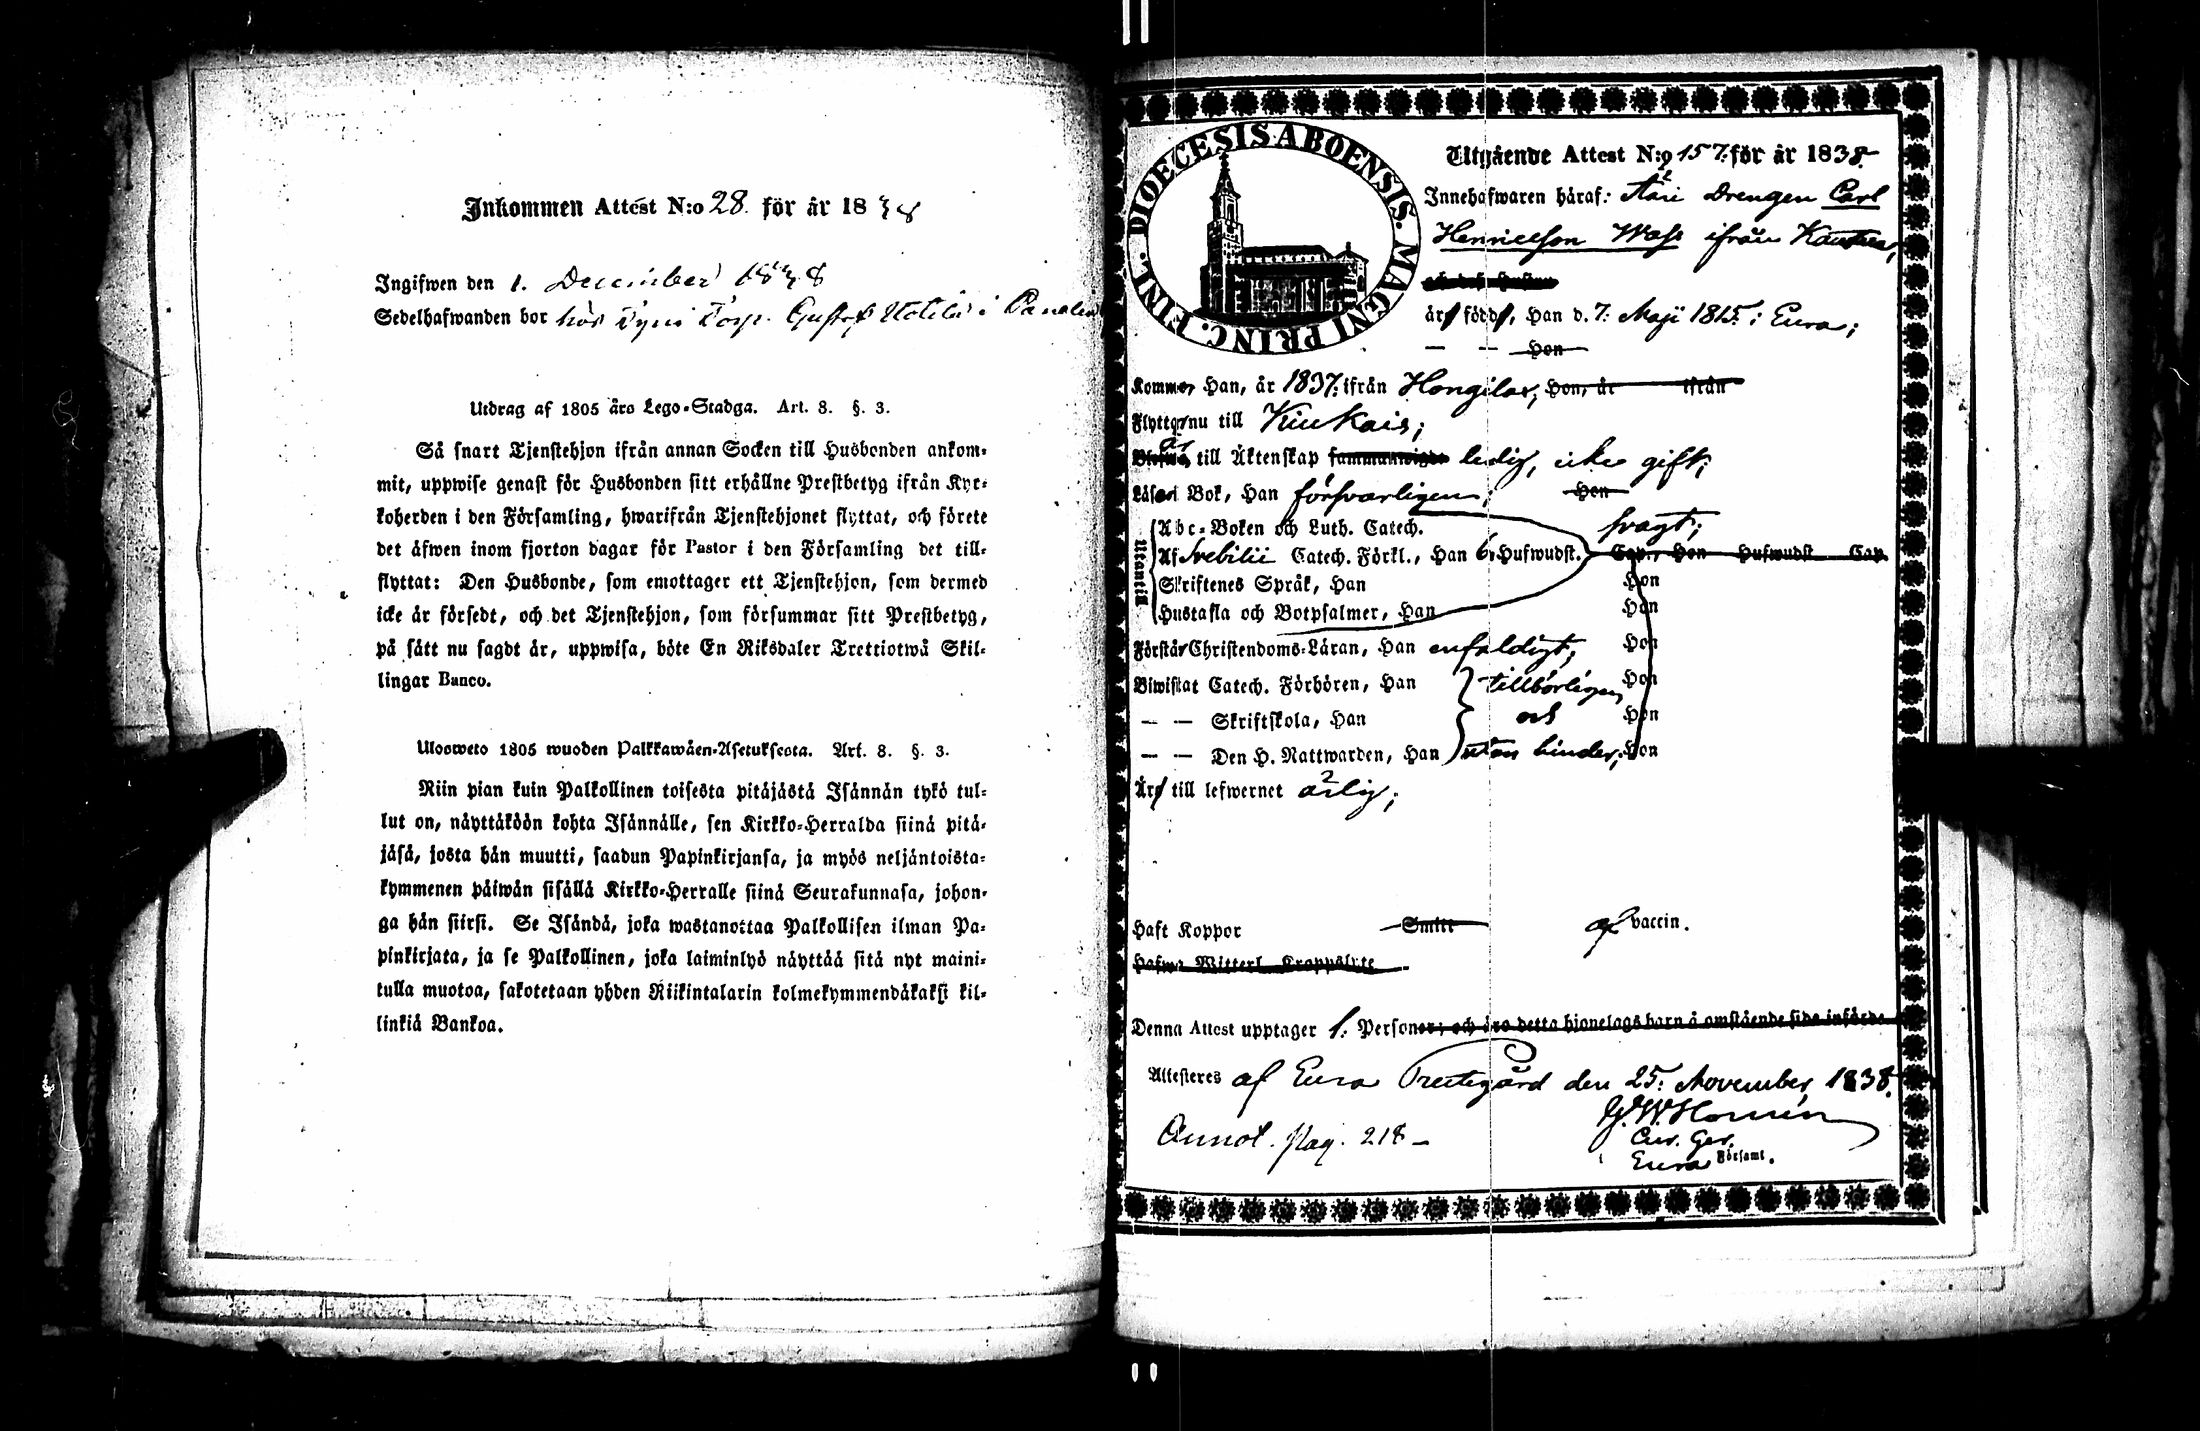 Inkommen Attest N:o 28. för år 1838
Ingifwen den 1. December 1838
Sedelhafwanden bor hos Torp. Gustaf i
Utdrag af 1805 års Lego-Stadga. Art. 8. §. 3.
Så snart Tjenstehjon ifrån annan Socken till Husbonden ankom-
mit, uppwise genast för Husbonden sitt erhållne Prestbetyg ifrån Kyr-
koherden i den Församling, hwarifrån Tjenstehjonet flyttat, och förete
det äfwen inom fjorton dagar för Pastor i den Församling det till-
flyttat: Den Husbonde, som emottager ett Tjenstehjon, som dermed
icke är försedt, och det Tjenstehjon, som försummar sitt Prestbetyg,
på sätt nu sagdt är, uppwisa, böte En Riksdaler Trettiotwå Skil-
lingar Banco.
Ulosweto 1805 wuoden Palkkawäen-Asetuksesta. Art. 8. §. 3.
Niin pian kuin Palkollinen toisesta pitäjästä Isännän tykö tul-
lut on, näyttäköön kohta Isännälle, sen Kirkko-Herralda siinä pitä-
jäsä, josta hän muutti, saadun Papinkirjansa, ja myös neljäntoista-
kymmenen päiwän sisällä Kirkko-Herralle siinä Seurakunnasa, johon-
ga hän siirsi. Se Isändä, joka wastanottaa Palkollisen ilman Pa-
pinkirjata, ja se Palkollinen, joka laiminlyö näyttää sitä nyt maini-
tulla muotoa, sakotetaan yhden Riikintalarin kolmekymmendäkaksi kil-
linkiä Bankoa.
DIOECESIS ABOENSIS. MAGNI PRINC. FINL.
Utgående Attest N:o 157. för år 1838
Innehafwaren häraf: Drengen Carl
Henricsson Wass ifrån
och dess Hustru
äro födde, Han d. 7. Maji 1815. i Eura;
— — Hon
Kommo, Han, år 1837. ifrån Hongilax, Hon, år ifrån
Flytta nu till Kiukais;
till Äktenskap ledig, icke gift;
Läser i Bok, Han försvarligen; Hon
Utantill
Abc-Boken och Luth. Catech. svagt;
Af Svebilii Catech. Förkl., Han 6. Hufwudst. Cap., Hon Hufwudst. Cap.
Skriftenes Språk, Han Hon
Hustafla och Botpsalmer, Han Hon
Förstår Christendoms-Läran, Han enfaldigt; Hon
Biwistat Catech. Förhören, Han tillbörligen Hon
— — Skriftskola, Han och Hon
— — Den H. Nattwarden, Han utan hinder; Hon
Äro till lefwernet ärlig;
Haft Koppor Smitt af vaccin.
Denna Attest upptager 1. Personer; och äro detta hjonelags barn å omstående sida införde
Attesteres af Eura Prestegård den 25. November 1838.
Cur. Ger.
Annot. pag. 218
Eura Församl.